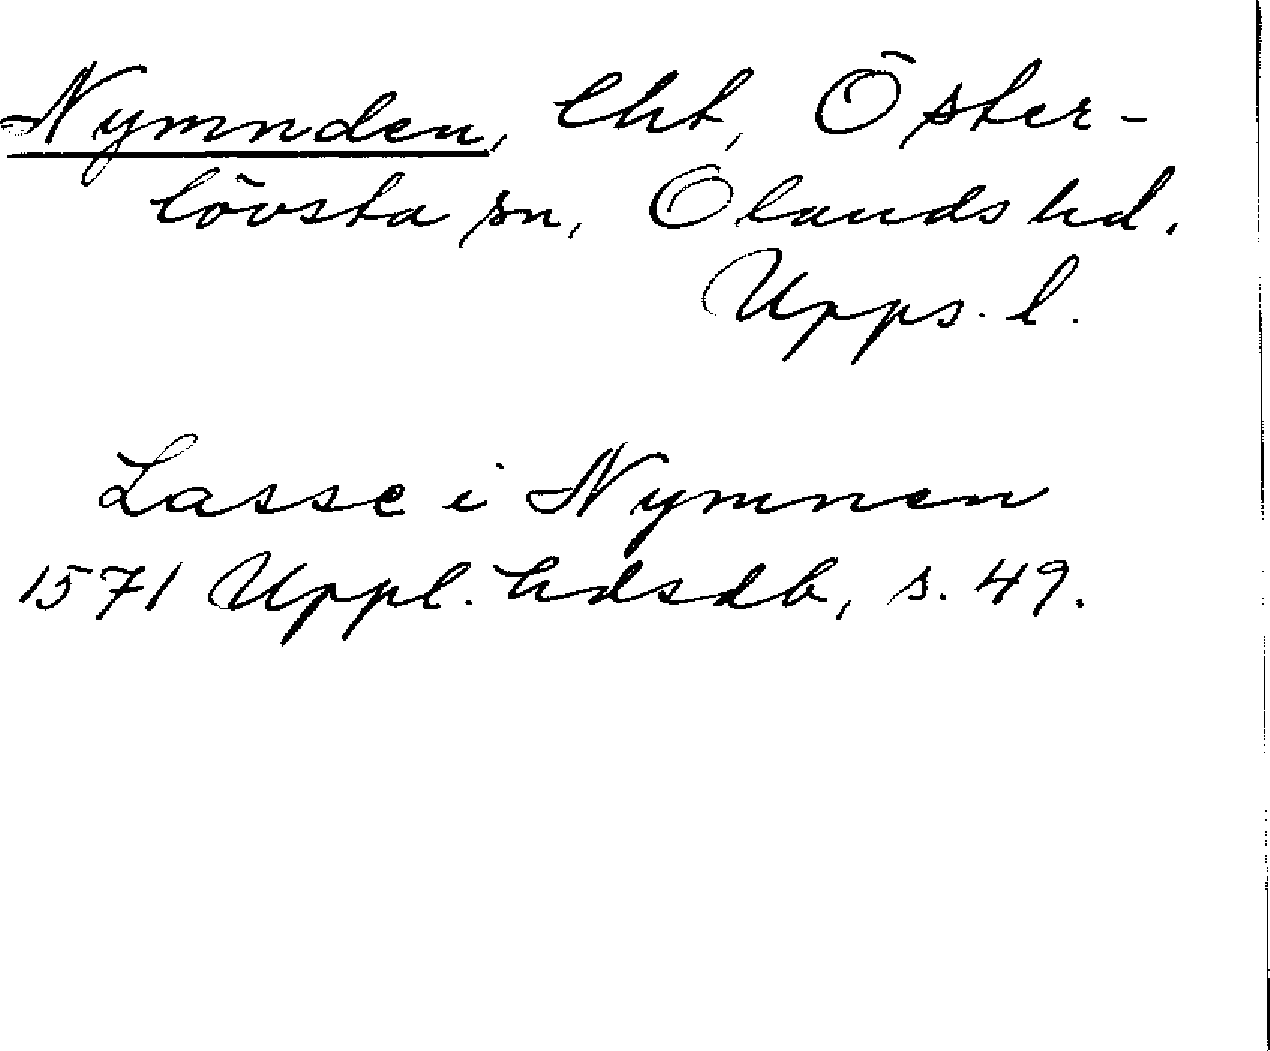 Nymnden, lht, Öster-
lövsta sn, Ölands hd.
Upps. l.
Lasse i Nymnen
1571 Uppl. hdsdb, s. 49.